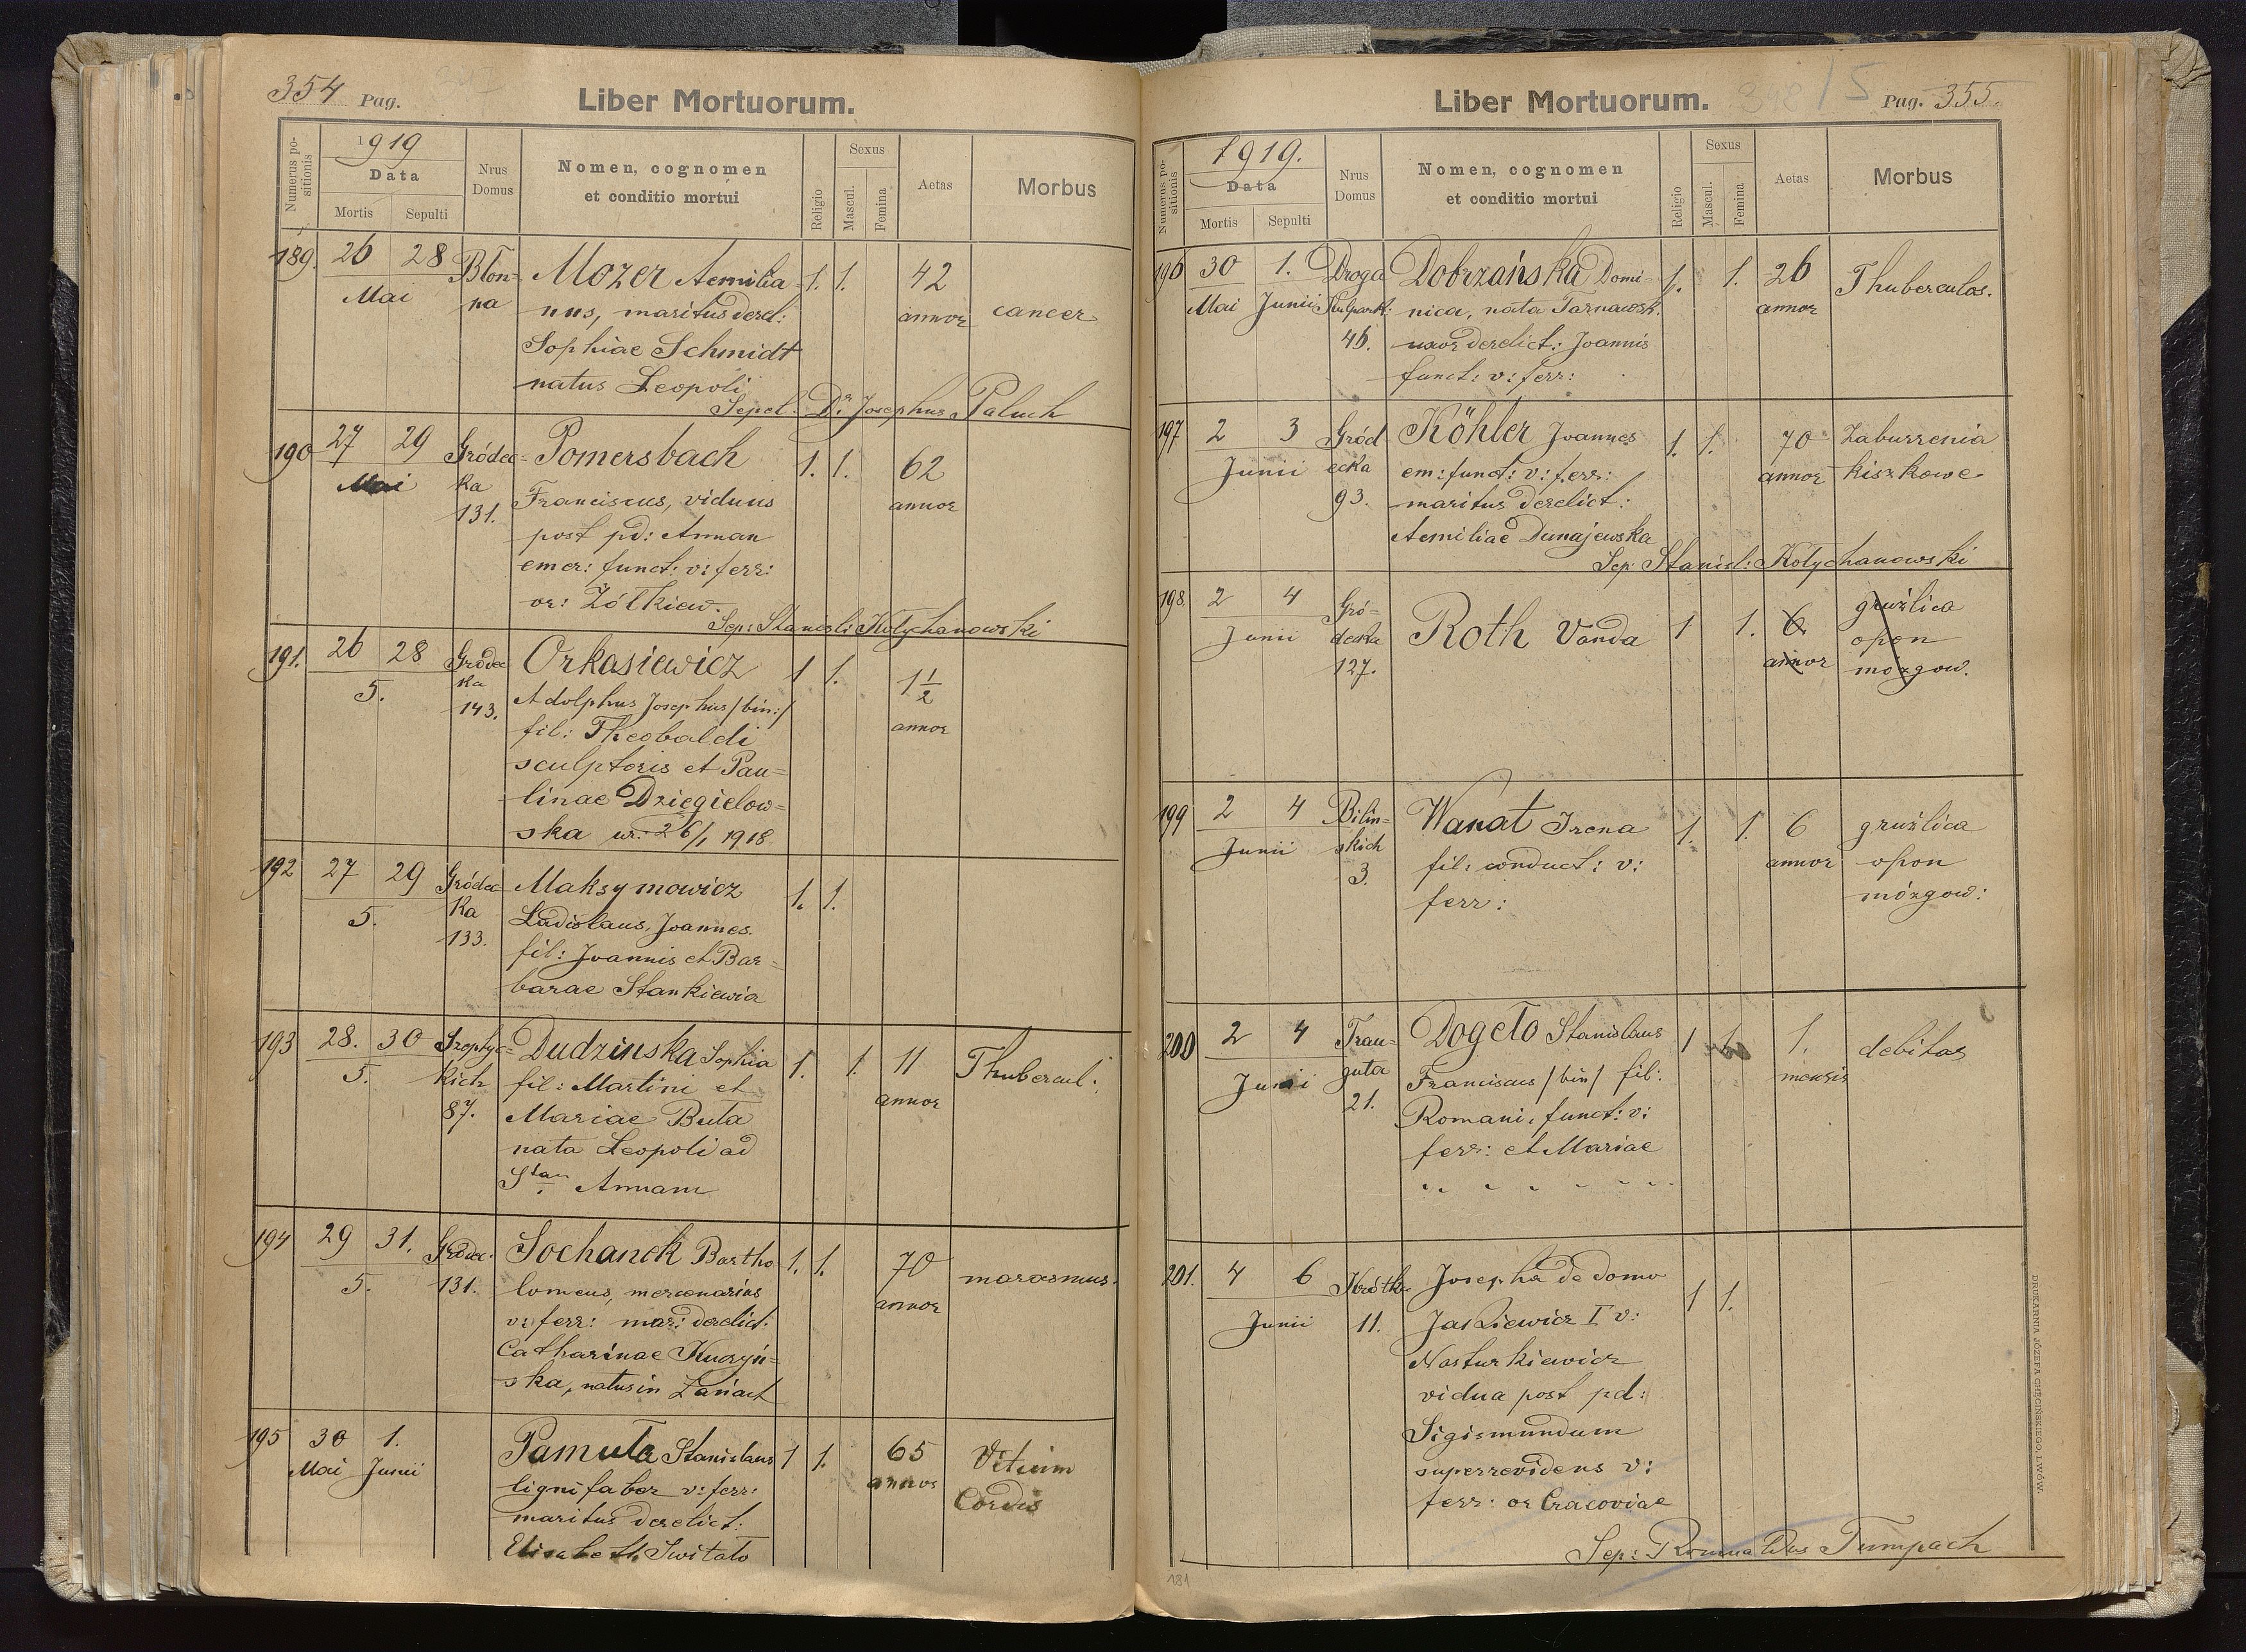 354 Pag.
Liber Mortuorum.
Numerus positionis
1919
Data
Mortis Sepulti
Nrus Domus
Nomen, cognomen
et conditio mortui
Religio
Sexus
Mascul. Femina
Aetas
Morbus
189. 26 28 Błon= Mozer Aemilia= 1. 1. 42
Mai na nus, maritus derel: annor cancer
Sophiae Schmidt
natus Leopoli
Sepel. Dr. Josephus Paluch
190 27 29 Gródec= Pomersbach 1. 1. 62
Mai ka Franciscus, viduus annor
131. post pd: Annan
emer: funct: v: ferr:
or: Żółkiew.
Sep: Stanisl: Kotychanowski
191. 26 28 Gródec Orkasiewicz 1 1. 1½
5. ka Adolphus Josephus /bin:/ annor
143. fil: Theobaldi
sculptoris et Pau=
linae Dziegielow=
ska ur. 26/1 1918
192 27 29 Gródec Maksymowicz 1. 1.
5. ka Ladislaus, Joannes.
133. fil: Joannis et Bar=
barae Stankiewicz
193 28. 30 Szeptyc= Dudzinska Sophia 1. 1. 11 Thubercul:
5. kich fil: Martini et annor
87. Mariae Buta
nata Leopoli ad
Stam Annam
194 29 31. Gródec. Sochanek Bartho 1. 1. 70 marasmus.
5. 131. lomeus, mercenarius annor
v: ferr: mar: derelict:
Catharinae Kuczyń=
ska, natus in Łańcut
195 30 1. Pamuła Stanislaus 1 1. 65 Vitium
Mai Junii lignifaber v: ferr: annor Cordis
maritus derelict:
Elisabeth Switato
Liber Mortuorum.
348 15
Pag. 355.
Numerus positionis
1919.
Data
Mortis Sepulti
Nrus Domus
Nomen, cognomen
et conditio mortui
Religio
Sexus
Mascul. Femina
Aetas
Morbus
196 30 1. Droga Dobrzańska Domi= 1. 1. 26 Thuberculos.
Mai Junii Kulpark: nica, nata Tarnawsk. annor
46. uxor derelict: Joannis
funct: v: ferr:
197 2 3 Gród Köhler Joannes 1. 1. 70 Zaburzenia
Junii ecka em: funct: v: ferr: annor kiszkowe
93. maritus derelict:
Aemiliae Dunajewska
Sep: Stanisl: Kotychanowski
198. 2 4 Gró= Roth Vanda 1 1. 6 gruźlica
Junii decka annor opon
127. mózgow.
199 2 4 Bilin= Wanat Irena 1. 1. 6 gruźlica
Junii skich fil: conduct: v: annor opon
3. ferr: mózgow:
200 2 4 Trau= Dogeto Stanislaus 1 1. 1. debitas
Junii guta Franciscus /bin/ fil: mensis
21. Romani, funct: v:
ferr: et Mariae
201. 4 6 Krótka Josepha de domo 1 1.
Junii 11. Jaskiewicz I v:
Nasturkiewicz
vidua post pd:
Sigismundum
superrevidens v:
ferr: or Cracoviae
Sep: Romualdus Tumpach
181
DRUKARNIA JÓZEFA CHĘCIŃSKIEGO, LWÓW.